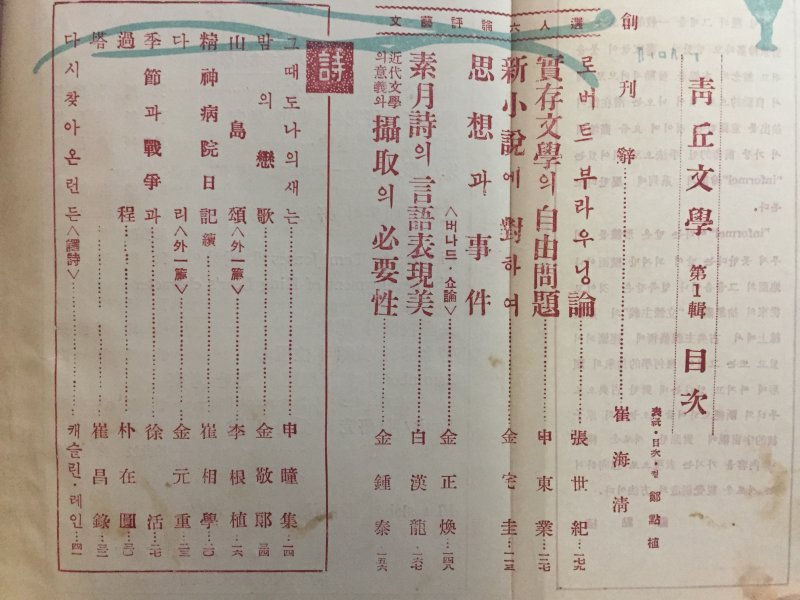 靑丘文學 第1輯 目次
表紙·目次·컽 鄭點植
創刊辭……崔海淸
文藝評論六人選
로버트브라우닝論……張世紀…一七九
實存文學의 自由問題……申東業…一二七
新小說에 對하여……金宅圭…一一三
思想과 事件〈버나드·쇼論〉……金正煥…一四八
素月詩의 言語表現美……白漢龍…一六七
近代文學의意義와 攝取의 必要性……金鍾泰…一五六
詩
그때도나의새는……申瞳集…一四
밤의戀歌……金敬郞…三四
山島頌〈外一篇〉……李根植…一六
精神病院日記 續……崔相學…三〇
다리〈外一篇〉……金元重…二三
季節과戰爭과……徐活…二七
過程……朴在圓
塔……崔昌錄
다시찾아온런든〈譯詩〉……캐슬린·레인…四一